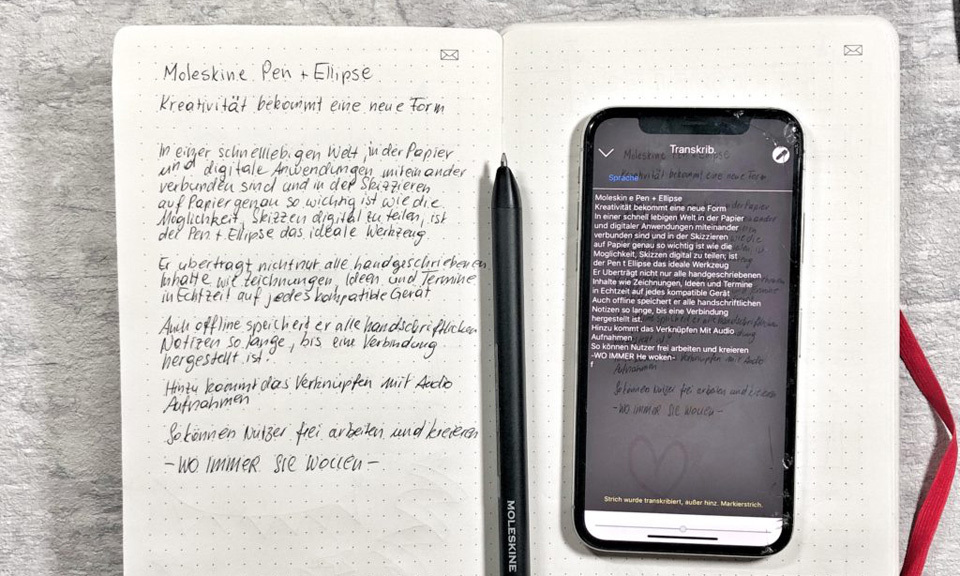 Moleskine Pen + Ellipse
Kreativität bekommt eine neue Form
In einer schnelllebigen Welt, in der Papier
und digitale Anwendungen miteinander
verbunden sind und in der Skizzieren
auf Papier genau so wichtig ist wie die
Möglichkeit, Skizzen digital zu teilen, ist
der Pen + Ellipse das ideale Werkzeug
Er überträgt nicht nur alle handgeschriebenen
Inhalte wie Zeichnungen, Ideen und Termine
in Echtzeit auf jedes kompatible Gerät
Auch offline speichert er alle handschriftlichen
Notizen so lange, bis eine Verbindung
hergestellt ist.
Hinzu kommt das Verknüpfen mit Audio
Aufnahmen
So können Nutzer frei arbeiten und kreieren
- WO IMMER SIE WOLLEN -
MOLESKINE
Transkrib.
Sprache
Moleskin e Pen + Ellipse
Kreativität bekommt eine neue Form
In einer schnell lebigen Welt in der Papier
und digitaler Anwendungen miteinander
verbunden sind und in der Skizzieren
auf Papier genau so wichtig ist wie die
Möglichkeit, Skizzen digital zu teilen; ist
der Pen t Ellipse das ideale Werkzeug
Er Uberträgt nicht nur alle handgeschriebenen
Inhalte wie Zeichnungen, Ideen und Termine
in Echtzeit auf jedes kompatible Gerät
Auch offline speichert er alle handschriftlichen
Notizen so lange, bis eine Verbindung
hergestellt ist.
Hinzu kommt das Verknüpfen Mit Audio
Aufnahmen
So können Nutzer frei arbeiten und kreieren
-WO IMMER He woken-
f
Aufnahmen
So können Nutzer frei arbeiten und kreieren
- WO IMMER SIE WOLLEN -
Strich wurde transkribiert, außer hinz. Markierstrich.